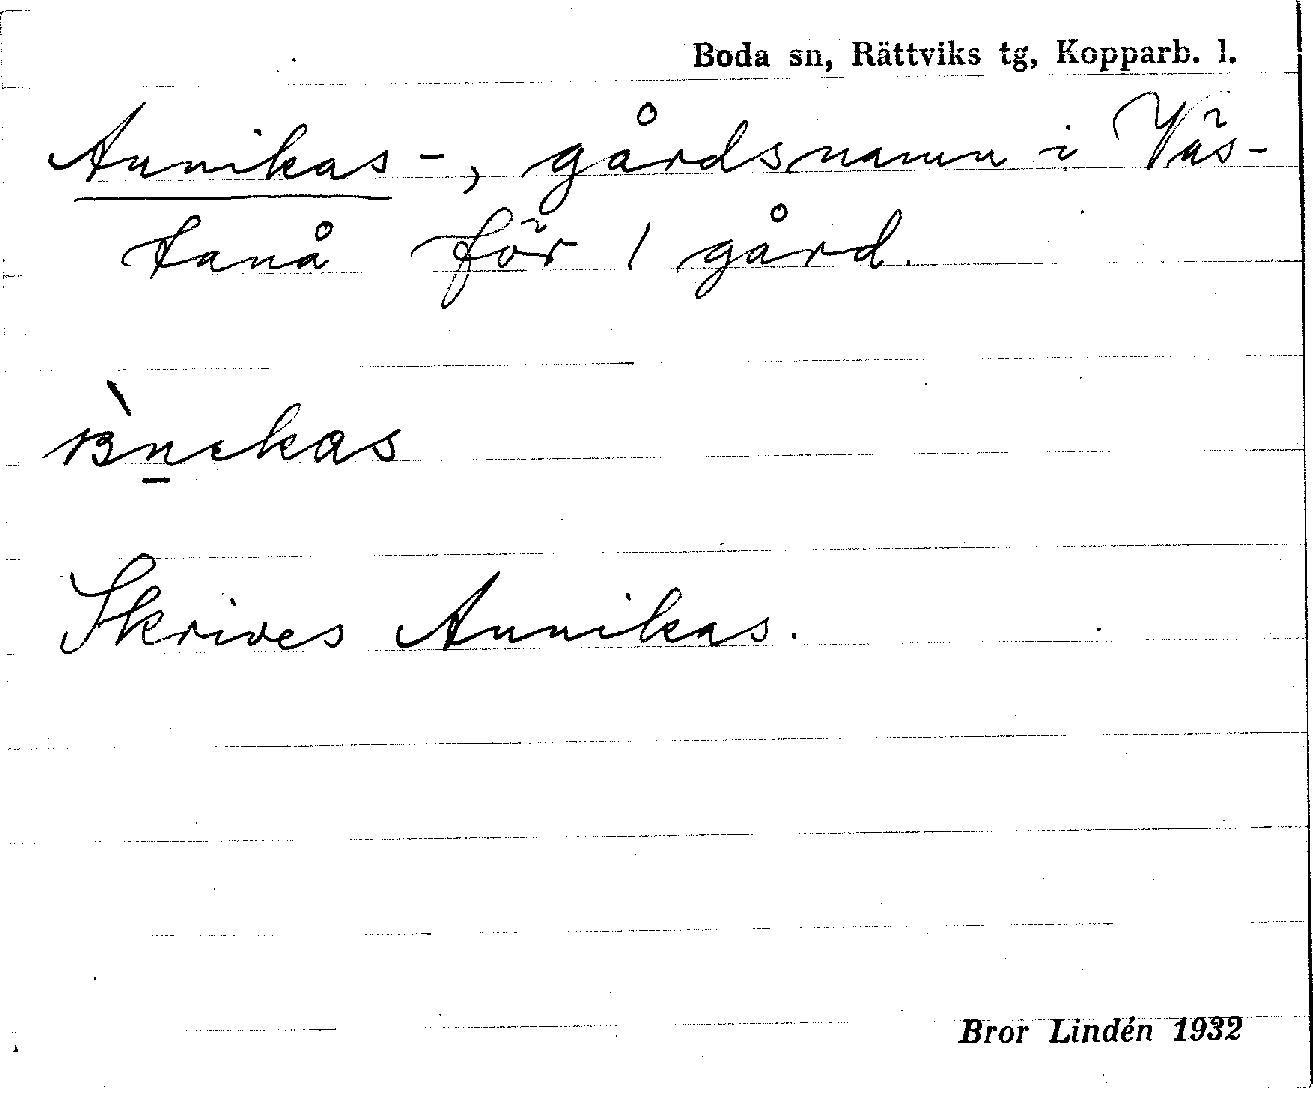 Boda sn, Rättviks tg, Kopparb. l.
Annikas-, gårdsnamn i Väs-
tanå för 1 gård.
Skrives Annikas.
Bror Lindén 1932